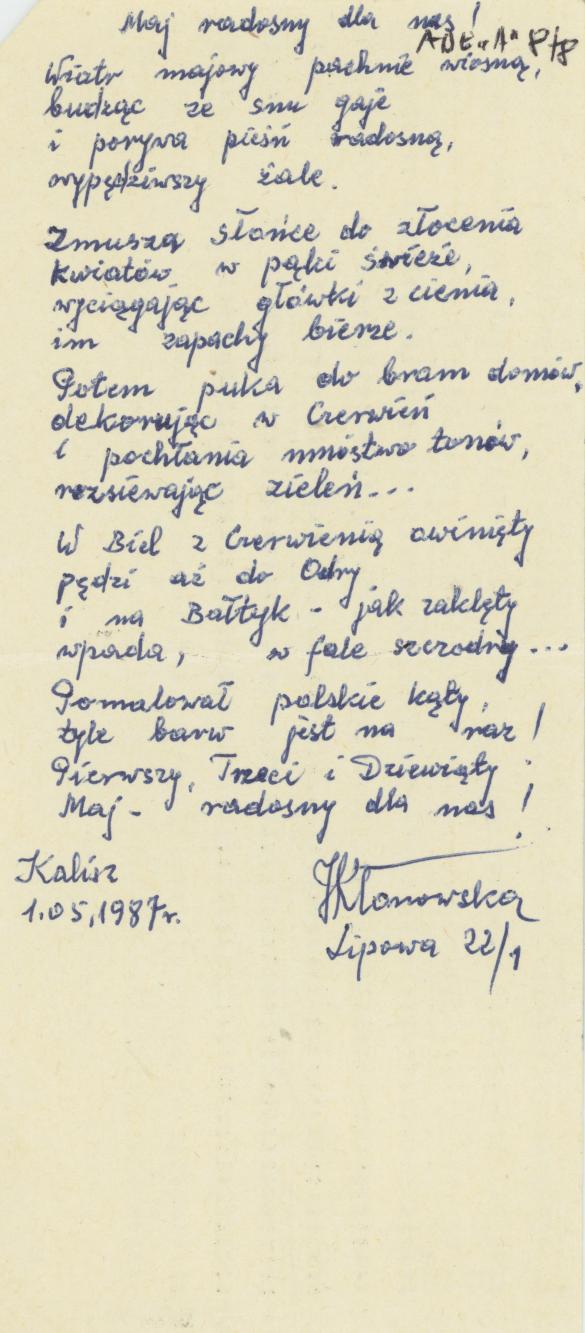 Maj radosny dla nas!
ADE "A" 8/8
Wiatr majowy pachnie wiosną,
budząc ze snu gaje
i porywa pieśń radosną,
wypędziwszy żale.
Zmusza słońce do złocenia
kwiatów w pąki świeże,
wyciągając główki z cienia,
im zapachy bierze.
Potem puka do bram domów,
dekorując w Czerwień
i pochłania mnóstwo tonów,
rozsiewając zieleń...
W Biel z Czerwienią owinięty
pędzi aż do Odry
i na Bałtyk - jak zaklęty
wpada, w fale szczodry...
Pomalował polskie kąty,
tyle barw jest na raz!
Pierwszy, Trzeci i Dziewiąty
Maj - radosny dla nas!
Kalisz
1.05.1987r.
JKłanowska
Lipowa 22/1